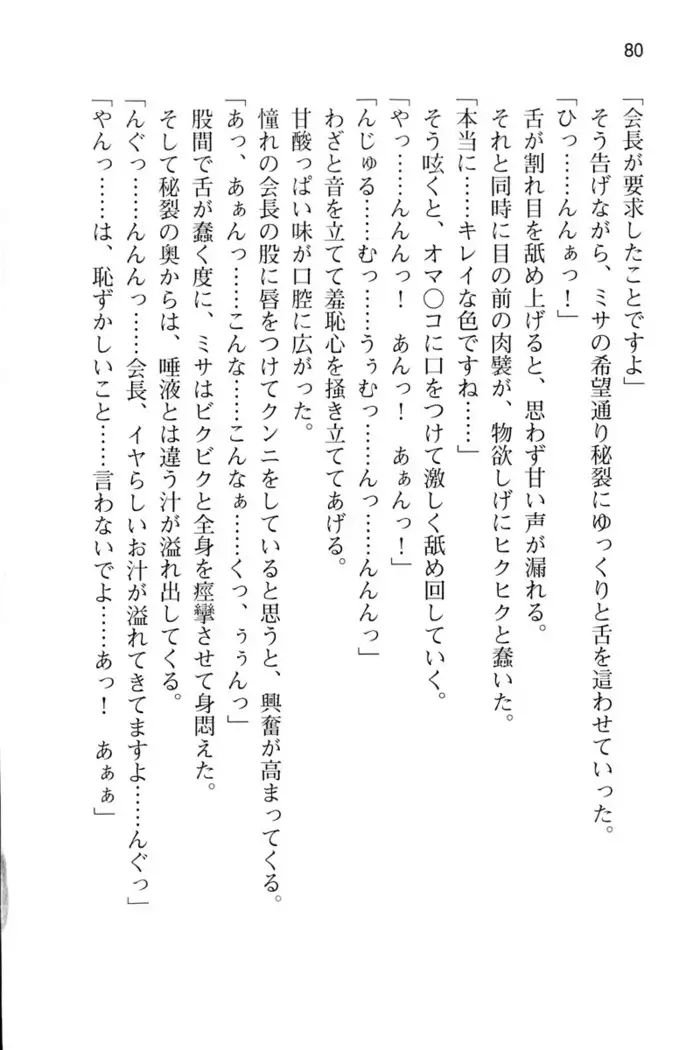 80
「会長が要求したことですよ」
そう告げながら、ミサの希望通り秘裂にゆっくりと舌を這わせていった。
「ひっ……んんぁっ！」
舌が割れ目を舐め上げると、思わず甘い声が漏れる。
それと同時に目の前の肉襞が、物欲しげにヒクヒクと蠢いた。
「本当に……キレイな色ですね……」
そう呟くと、オマ〇コに口をつけて激しく舐め回していく。
「やっ……んんんっ！　あんっ！　あぁんっ！」
「んじゅる……むっ……うぅむっ……んっ……んんんっ」
わざと音を立てて羞恥心を掻き立ててあげる。
甘酸っぱい味が口腔に広がった。
憧れの会長の股に唇をつけてクンニをしていると思うと、興奮が高まってくる。
「あっ、あぁんっ……こんな……こんなぁ……くっ、ぅぅんっ」
股間で舌が蠢く度に、ミサはビクビクと全身を痙攣させて身悶えた。
そして秘裂の奥からは、唾液とは違う汁が溢れ出してくる。
「んぐっ……んんんっ……会長、イヤらしいお汁が溢れてきてますよ……んぐっ」
「やんっ……は、恥ずかしいこと……言わないでよ……あっ！　あぁぁ」